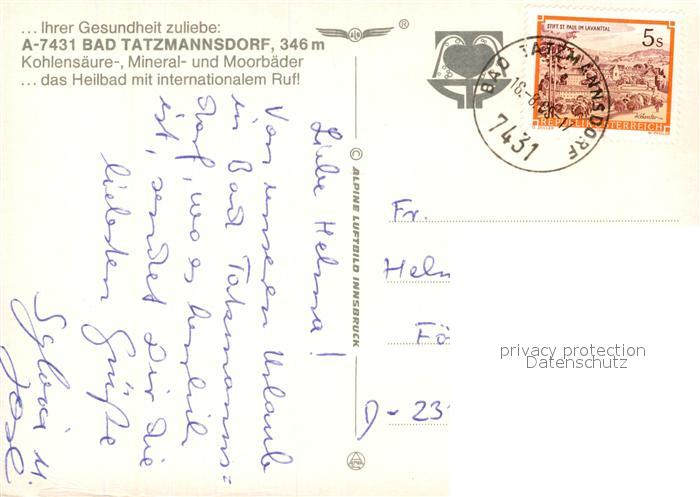 ... Ihrer Gesundheit zuliebe:
A-7431 BAD TATZMANNSDORF, 346 m
Kohlensäure-, Mineral- und Moorbäder
... das Heilbad mit internationalem Ruf!
®
STIFT ST. PAUL IM LAVANTTAL
5 S
REPUBLIK ÖSTERREICH
BAD TATZMANNSDORF
7431
© ALPINE LUFTBILD INNSBRUCK
Liebe Helma!
Von unseren Urlaub
in Bad Tatzmanns=
dorf, wo es herrlich
ist, sendet Dir die
liebsten Grüße
Sylvia u.
Josef
Fr.
Helm
Fö
D - 23
privacy protection
Datenschutz